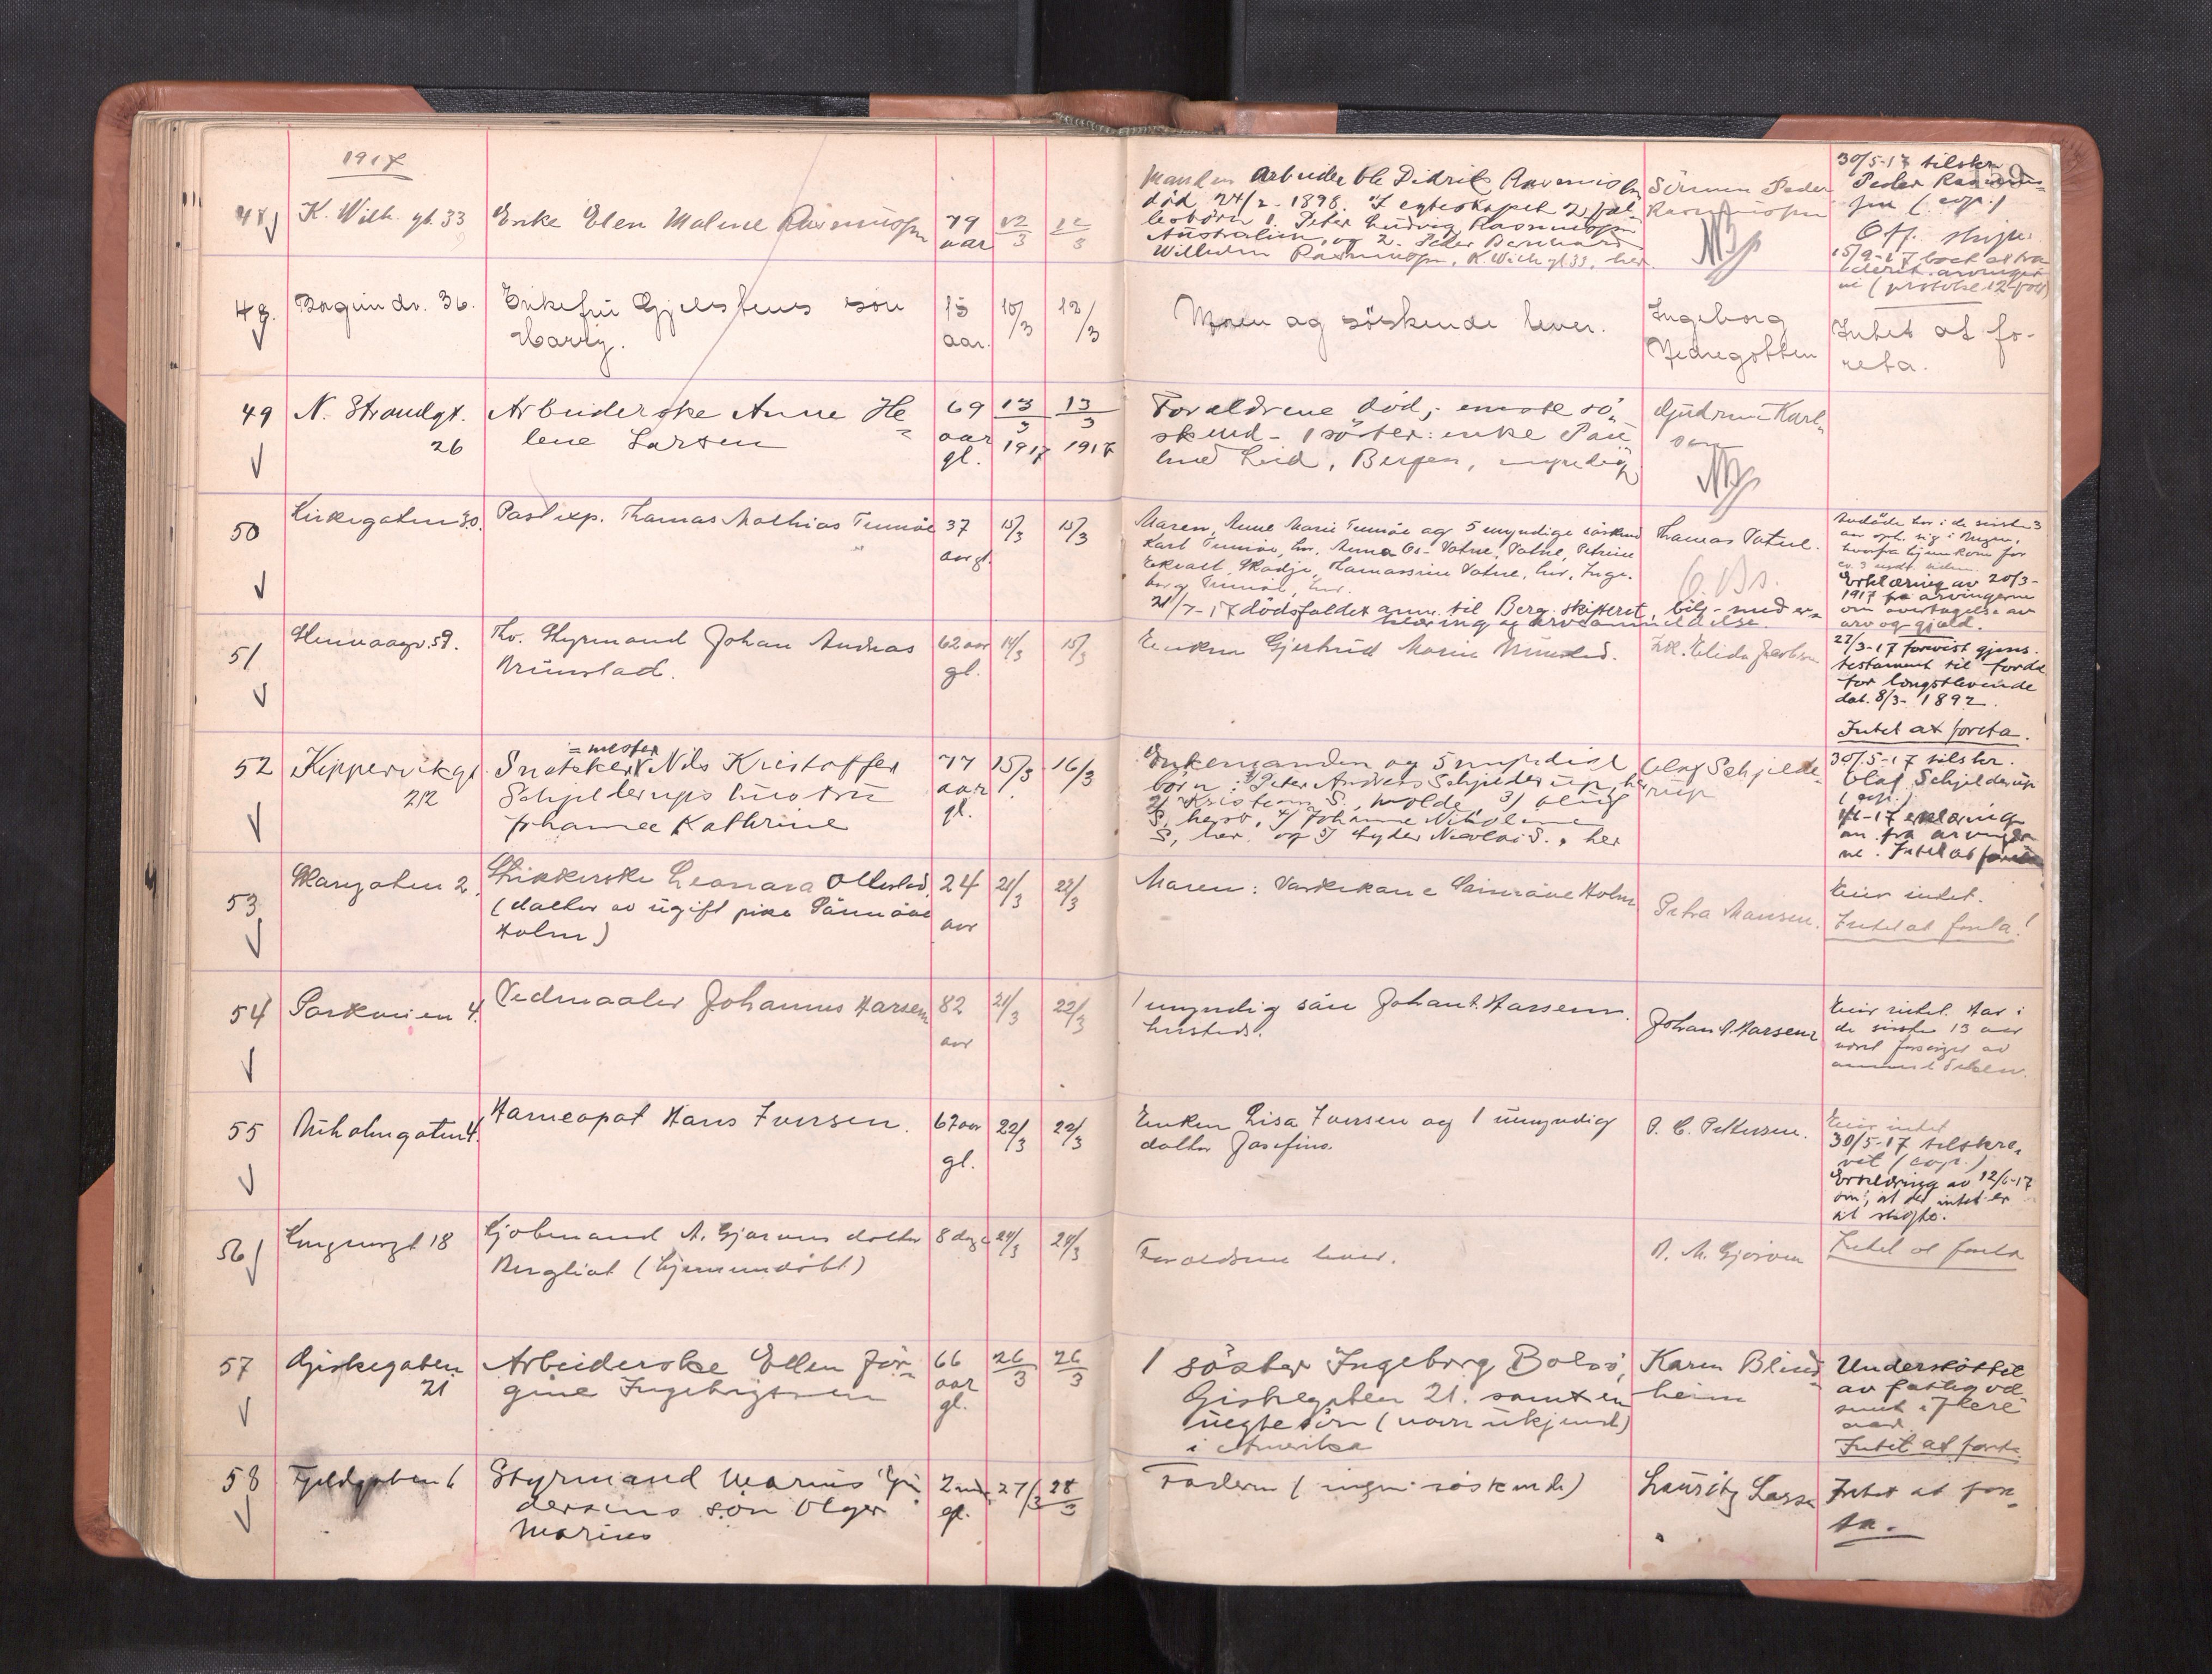 1917
48 K. Wilh. gt. 33 Enke Elen Malene Rasmussen 79 aar 12/3 12/3
Manden Arbeider Ole Didrik Rasmussen
død 24/2-1898. I egteskapet 2 fæl-
lesbörn 1. Peter Ludvig Rasmussen
Australien, og 2. Peder Bernhard
Wilhelm Rasmussen, K. Wilh. gt 33, her.
Sönnen Peder
Rasmussen
30/5-17 tilskr.
Peder Rasmus-
sen (cop.)
Off. skifte
159
48. Enkefru Gjelstens sön
Harry.
13
aar.
10/3 12/3
Moren og söskende lever.
Ingeborg
Intet at fo-
reta.
49 N. Strandgt.
26
Arbeiderske Anne He-
lene Larsen
69
aar
gl.
13/3
1917
13/3
1917
Foraldrene död; eneste sö-
skend - 1 söster: enke Pau
line Leid, Bergen, myndig
Gjudrun Karl-
sen
50 Kirkegaten 30. Postexp. Thomas Mathias Tennöe 37
aar gl.
15/3 15/3
Moren, Anne Marie Tennöe og 5 myndige söskend
Karl Tennöe, her, Anna Os-Vatne, Vatne, Petrine
Ekvall, Skodje, Thomassine Vatne, her, Inge-
borg Tennöe, her.
21/7-17 dödsfaldet anm. til Berg. skifteret, bilj. med er-
klæring og arveanmeldelse.
Thomas Vatne.
O. Bs.
Avdöde har i de sidste 3
aar oph. sig i Bergen,
hvorfra hjemkom for
ca. 3 mndr. siden.
Erklæring av 20/3-
1917 fra arvingerne
om overtagelse av
arv og gjæld.
51 Thv. Styrmand Johan Andreas
Brunstad.
62 aar
gl.
14/3 15/3
Enken Gjertrud Marie Brunstad.
27/3-17 forevist gjens.
testament til fordel
for længstlevende
dat. 8/3-1892.
Intet at foreta.
52 Kippervikgt.
22
= mester
Snekker Nils Kristoffer
Schjelderups hustru
Johanne Kathrine
77
aar
gl.
15/3 16/3
Enkemanden og 5 myndige
börn: 1/ Peter Andreas Schjelderup, her
2/ Kristian S., Molde, 3/ Oluf
S, her, 4/ Johanne Nikoline
S, her, og 5/ Lyder Nicolai S., her
Olaf Schjelde-
rup
30/5-17 tilskr.
Olaf Schjelderup
(cop.)
1/6-17 erklæring
an. fra arvinger
ne. Intet at foreta
53 Strikkerske Leonora Ollestad
(datter av ugift pike Sönnöve
Holm)
24
aar
21/3 22/3
Moren: Vaskekone Sönnöve Holm
Petra Monsen.
Eier intet.
Intet at foreta!
54 Parkveien 4. Vedmaaler Johannes Hansen 82
aar
21/3 22/3
1 myndig sön Johan A. Hansen.
husteds.
Johan A. Hansen
Eier intet. Har i
de sidste 13 aar
været forsörget av
55 Buholmgaten 4. Homeopat Hans Iversen. 67 aar
gl.
22/3 22/3
Enken Lisa Iversen og 1 umyndig
datter Josefine.
P. C. Pettersen.
Eier intet
30/5-17 tilskre-
vet (cop.)
Erklæring av 12/6-17
om, at der intet er
at skifte.
56 Kongensgt 18 Kjöbmand A. Gjörvens datter
Bergliot (hjemmedöbt)
8 dage 24/3 24/3
Foraldrene lever.
A. M. Gjörven
Intet at foreta
57 Giskegaten
21
Arbeiderske Ellen Jör-
gine Ingebrigtsen
66
aar
gl.
26/3 26/3
1 söster Ingeborg Bolsö,
Giskegaten 21. samt en
uegte sön (navn ukjendt)
i Amerika
Karen Blind-
heim
Understöttet
av fattigvæ-
senet i flere
aar.
Intet at foreta
58 Fjeldgaten 6 Styrmand Marius
sön Olger
Marius
2 mdr.
gl.
27/3 28/3
Faderen (ingen söskende)
Lauritz Lassen
Intet at fore-
ta.